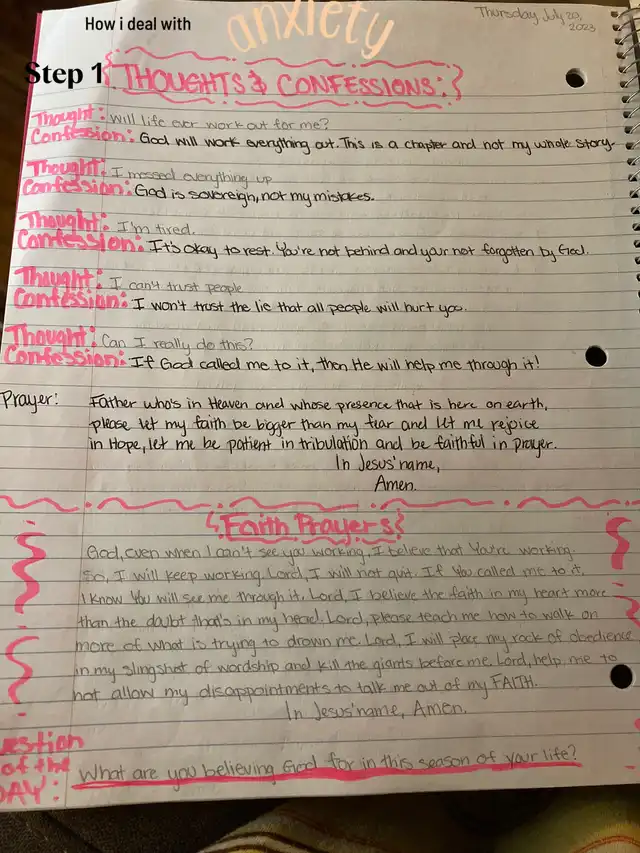 How i deal with
anxiety
Thursday July 20,
2023
Step 1
THOUGHTS & CONFESSIONS:
Thought: Will life ever work out for me?
Confession: God will work everything out. This is a chapter and not my whole story.
Thought: I messed everything up
Confession: God is sovereign, not my mistakes.
Thought: I'm tired.
Confession: It's okay to rest. You're not behind and your not forgotten by God.
Thought: I can't trust people
Confession: I won't trust the lie that all people will hurt you.
Thought: Can I really do this?
Confession: If God called me to it, then He will help me through it!
Prayer: Father who's in Heaven and whose presence that is here on earth,
please let my faith be bigger than my fear and let me rejoice
in Hope, let me be patient in tribulation and be faithful in prayer.
In Jesus' name,
Amen.
Faith Prayers
God, even when I can't see you working, I believe that You're working.
So, I will keep working. Lord, I will not quit. If You called me to it,
I know You will see me through it. Lord, I believe the faith in my heart more
than the doubt that's in my head. Lord, please teach me how to walk on
more of what is trying to drown me. Lord, I will place my rock of obedience
in my slingshot of wordship and kill the giants before me. Lord, help me to
not allow my disappointments to talk me out of my FAITH.
In Jesus' name, Amen.
uestion
of the
DAY: What are you believing God for in this season of your life?